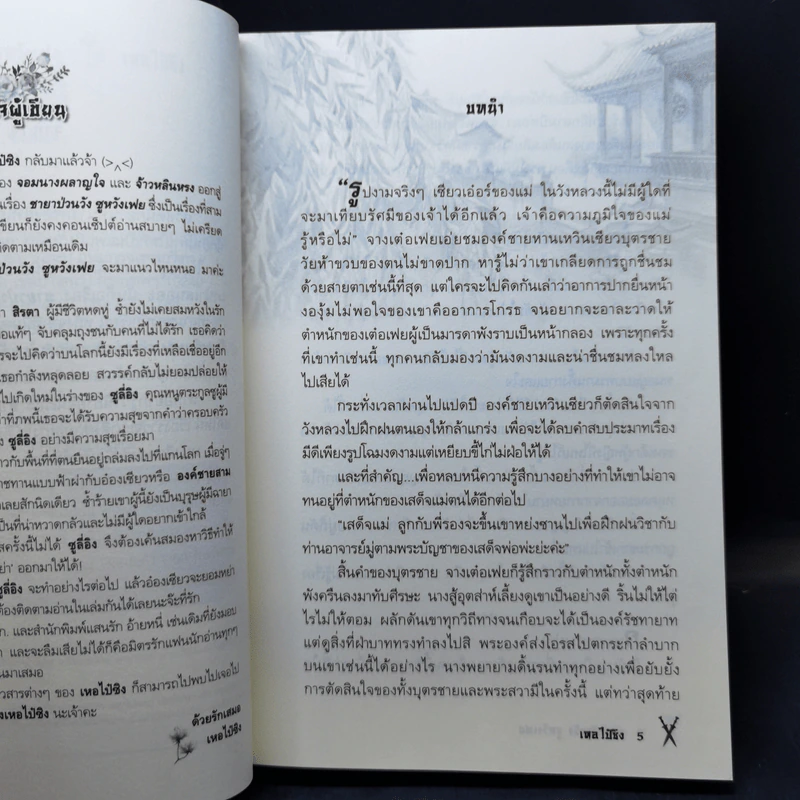 จผู้เขียน
ไป๋ชิง กลับมาแล้วจ้า (>^<)
อง จอมนางผลาญใจ และ จ้าวหลินหรง ออกสู่
นเรื่อง ชายาป่วนวัง ซูหวังเฟย ซึ่งเป็นเรื่องที่สาม
เขียนก็ยังคงคอนเซ็ปต์อ่านสบายๆ ไม่เครียด
ติดตามเหมือนเดิม
ป่วนวัง ซูหวังเฟย จะมาแนวไหนหนอ มาค่ะ
า สิรตา ผู้มีชีวิตหดหู่ ซ้ำยังไม่เคยสมหวังในรัก
อแท้ๆ จับคลุมถุงชนกับคนที่ไม่ได้รัก เธอคิดว่า
ใครจะไปคิดว่าบนโลกนี้ยังมีเรื่องที่เหลือเชื่ออยู่อีก
เธอกำลังหลุดลอย สวรรค์กลับไม่ยอมปล่อยให้
ไปเกิดใหม่ในร่างของ ซูลี่อิง คุณหนูตระกูลซูผู้มี
ว่าที่ภพนี้เธอจะได้รับความสุขจากคำว่าครอบครัว
ง ซูลี่อิง อย่างมีความสุขเรื่อยมา
าวกับพื้นที่ที่ตนยืนอยู่ถล่มลงไปที่แกนโลก เมื่อจู่ๆ
ราชทานแบบฟ้าผ่ากับอ๋องเซียวหรือ องค์ชายสาม
าเลยสักนิดเดียว ซ้ำร้ายเขาผู้นี้ยังเป็นบุรุษผู้มีฉายา
เป็นที่น่าหวาดกลัวและไม่มีผู้ใดอยากเข้าใกล้
สครั้งนี้ไม่ได้ ซูลี่อิง จึงต้องเค้นสมองหาวิธีทำให้
ย่า' ออกมาให้ได้!
ซูลี่อิง จะทำอย่างไรต่อไป แล้วอ๋องเซียวจะยอมหย่า
ต้องติดตามอ่านในเล่มกันได้เลยนะจ๊ะที่รัก
ก. และสำนักพิมพ์แสนรัก อ้ายหนี่ เช่นเดิมที่ยังมอบ
า และจะลืมเสียไม่ได้ก็คือมิตรรักแฟนนักอ่านทุกๆ
นมาเสมอ
าวสารต่างๆ ของ เหอไป๋ชิง ก็สามารถไปพบไปเจอไป
งเหอไป๋ชิง นะเจ้าคะ
ด้วยรักเสมอ
เหอไป๋ชิง
บทนำ
“รูปงามจริงๆ เซียวเอ๋อร์ของแม่ ในวังหลวงนี้ไม่มีผู้ใดที่
จะมาเทียบรัศมีของเจ้าได้อีกแล้ว เจ้าคือความภูมิใจของแม่
รู้หรือไม่” จางเต๋อเฟยเอ่ยชมองค์ชายหานเหวินเซียวบุตรชาย
วัยห้าขวบของตนไม่ขาดปาก หารู้ไม่ว่าเขาเกลียดการถูกชื่นชม
ด้วยสายตาเช่นนี้ที่สุด แต่ใครจะไปคิดกันเล่าว่าอาการปากยื่นหน้า
งองุ้มไม่พอใจของเขาคืออาการโกรธ จนอยากจะอาละวาดให้
ตำหนักของเต๋อเฟยผู้เป็นมารดาพังราบเป็นหน้ากลอง เพราะทุกครั้ง
ที่เขาทำเช่นนี้ ทุกคนกลับมองว่ามันงดงามและน่าชื่นชมหลงใหล
ไปเสียได้
กระทั่งเวลาผ่านไปแปดปี องค์ชายเหวินเซียวก็ตัดสินใจจาก
วังหลวงไปฝึกฝนตนเองให้กล้าแกร่ง เพื่อจะได้ลบคำสบประมาทเรื่อง
มีดีเพียงรูปโฉมงดงามแต่เหยียบขี้ไก่ไม่ฝ่อให้ได้
และที่สำคัญ...เพื่อหลบหนีความรู้สึกบางอย่างที่ทำให้เขาไม่อาจ
ทนอยู่ที่ตำหนักของเสด็จแม่ตนได้อีกต่อไป
“เสด็จแม่ ลูกกับพี่รองจะขึ้นเขาหย่งซานไปเพื่อฝึกฝนวิชากับ
ท่านอาจารย์มู่ตามพระบัญชาของเสด็จพ่อพ่ะย่ะค่ะ”
สิ้นคำของบุตรชาย จางเต๋อเฟยก็รู้สึกราวกับตำหนักทั้งตำหนัก
พังครืนลงมาทับที่ศีรษะ นางสู้อุตส่าห์เลี้ยงดูเขาเป็นอย่างดี ริ้นไม่ให้ไต่
ไรไม่ให้ตอม ผลักดันเขาทุกวิถีทางจนเกือบจะได้เป็นองค์รัชทายาท
แต่ดูสิ่งที่ฝ่าบาททรงทำลงไปสิ พระองค์ส่งโอรสไปตกระกำลำบาก
บนเขาเช่นนี้ได้อย่างไร นางพยายามดิ้นรนทำทุกอย่างเพื่อยับยั้ง
การตัดสินใจของทั้งบุตรชายและพระสวามีในครั้งนี้ แต่ทว่าสุดท้าย
เหอไป๋ชิง 5